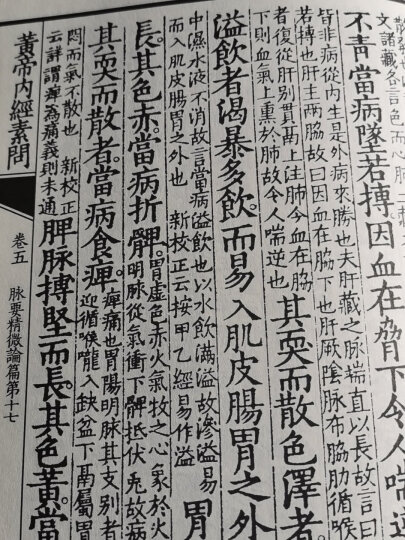 文諸藏各言色而心肺二
不青當病墜若搏因血在脅下令人喘逆
皆非病從內生是外病來勝也夫肝藏之脈端直以長故言曰
若搏也肝主兩脇故曰因血在脇下也肝厥陰脈布脇肋循喉
者復從肝別貫鬲上注肺今血在脇
下則血氣上熏於肺故令人喘逆也
其耎而散色澤者
溢飲者渴暴多飲。而易入肌皮腸胃之外
中濕水液不消故言當病溢飲也以水飲滿溢故滲溢易
而入肌皮腸胃之外也　新校正云按甲乙經易作溢
胃
長。其色赤。當病折髀。
胃虛色赤火氣牧之心象於火
明脈從氣衝下髀抵伏兔故病
其耎而散者。當病食痹。
痹痛也胃陽明脈其支別者
迎循喉嚨入缺盆下鬲屬胃
悶而氣不散也　新校正
云詳謂痹爲痛義則未通
脾脈搏堅而長。其色黃。當
黃帝內經素問
卷五　脈要精微論篇第十七